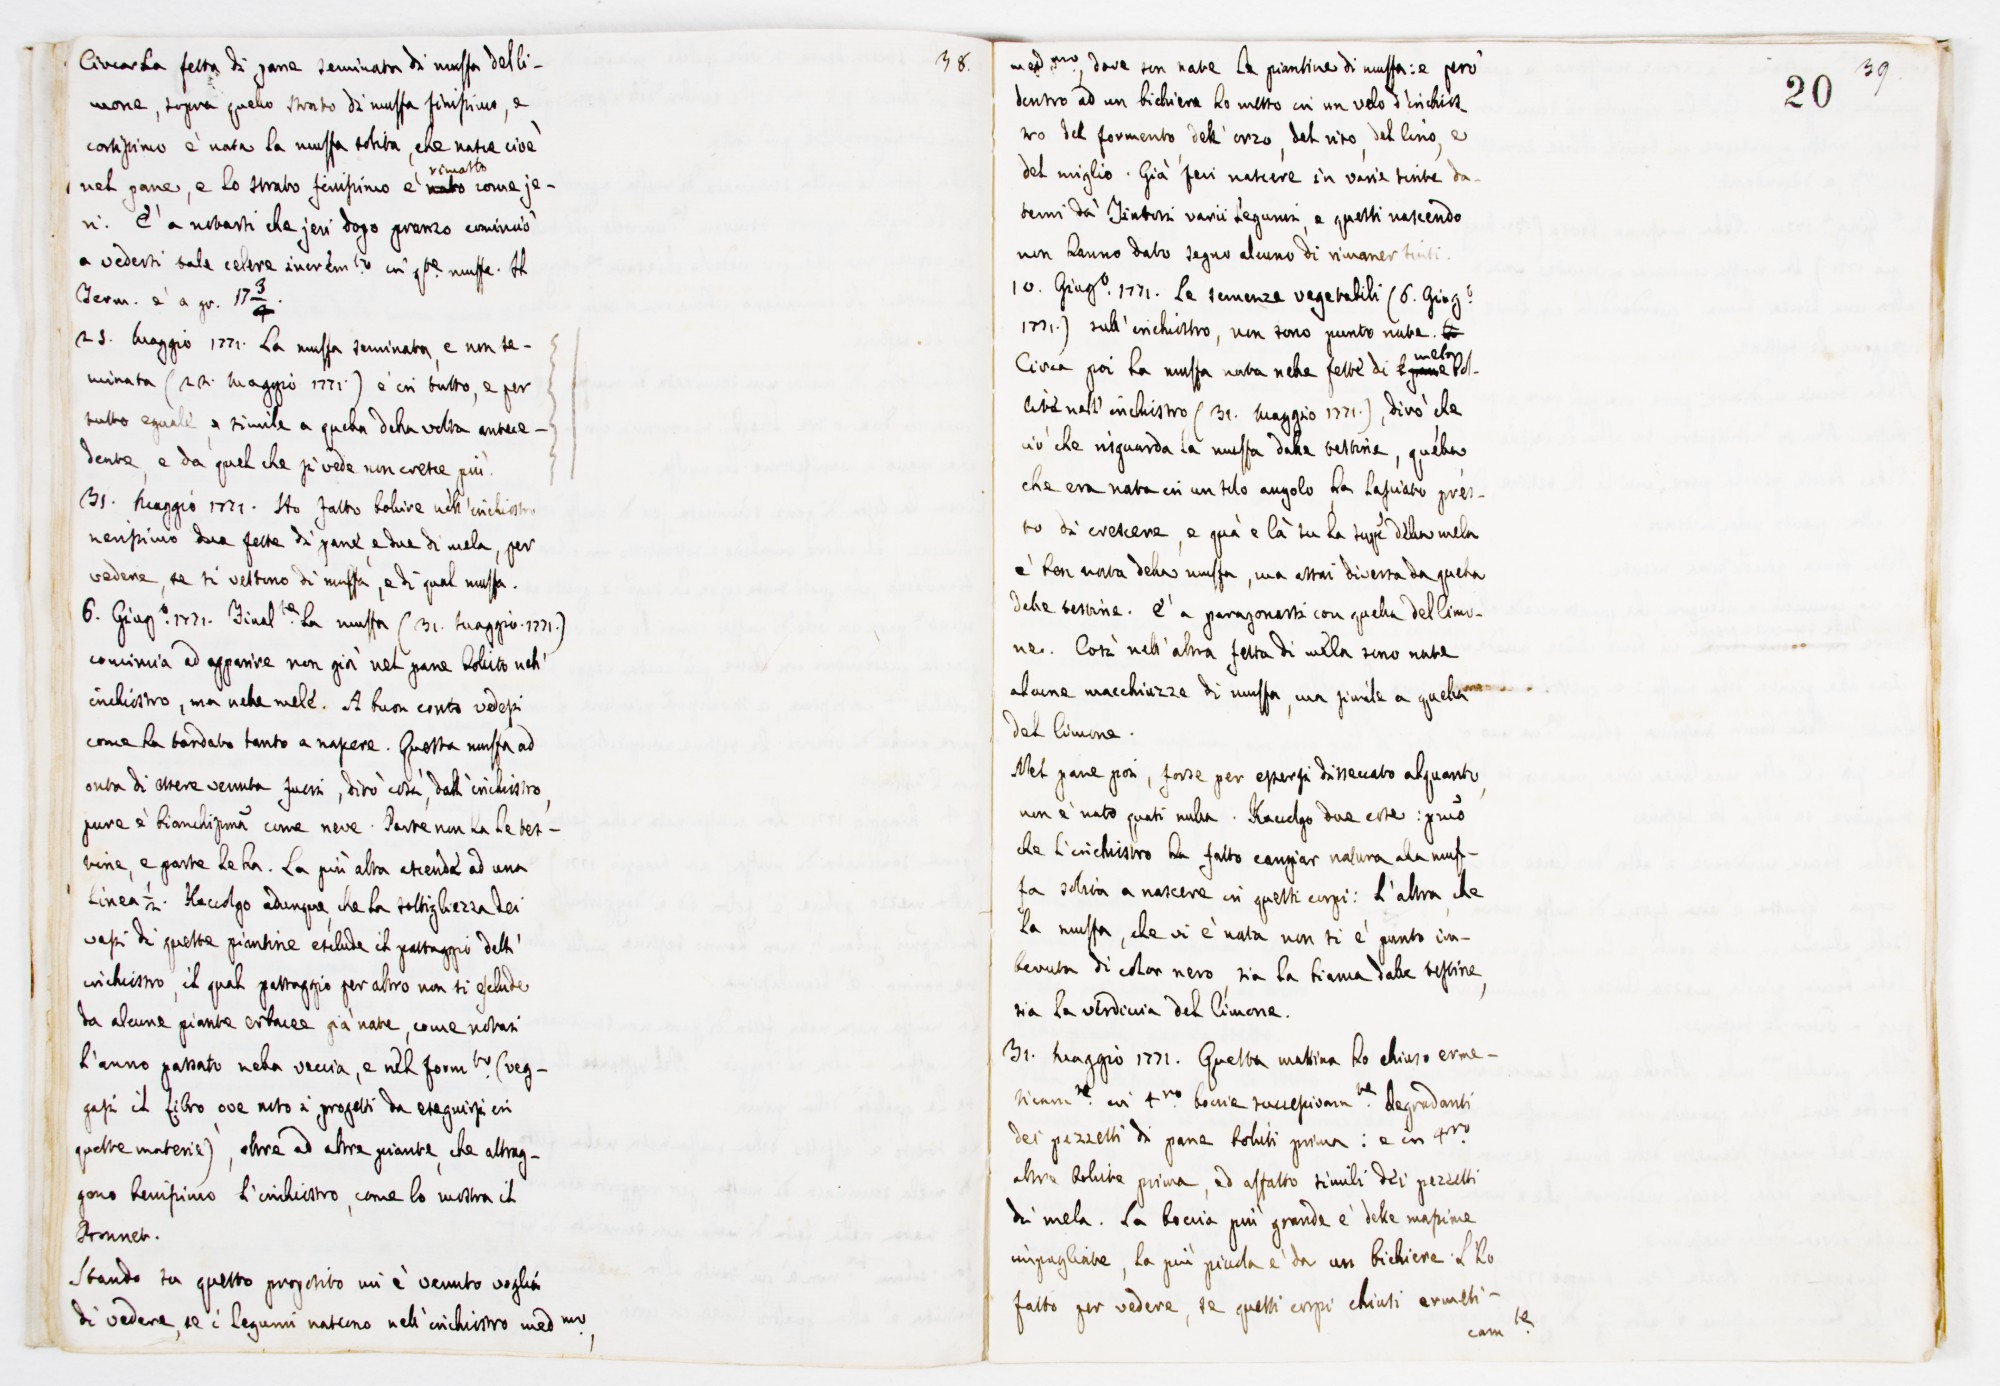 38.
Circa la fetta di pane seminata di muffa del li-
mone, sopra quello strato di muffa finissimo, e
cortissimo è nata la muffa solita, che nasce cioè
nel pane, e lo strato finissimo è nato rimasto come je-
ri. È a notarsi che jeri dopo pranzo cominciò
a vedersi tale celere increm.to in q.ta muffa. Il
Term. è a gr. 17 3/4.
25. Maggio 1771. La muffa seminata, e non se-
minata (22. Maggio 1771.) è in tutto, e per
tutto eguale, e simile a quella della volta antece-
dente, e da quel che si vede non cresce più.
31. Maggio 1771. Ho fatto bollire nell'inchiostro
nerissimo due fette di pane, e due di mela, per
vedere, se si vestono di muffa, e di qual muffa.
6. Giug.o 1771. Final.te la muffa (31. Maggio 1771.)
comincia ad apparire non già nel pane bollito nell'
inchiostro, ma nelle mele. A buon conto vedesi
come ha tardato tanto a nascere. Questa muffa ad
onta di essere venuta fuori, dirò così, dall'inchiostro,
pure è bianchissima come neve. Parte non ha le tes-
tine, e parte le ha. La più alta ascende ad una
linea 1/2. Raccolgo adunque, che la sottigliezza dei
vasi di queste piantine esclude il passaggio dell'
inchiostro, il qual passaggio per altro non si esclude
da alcune piante erbacee già nate, come notasi
l'anno passato nella veccia, e nel form.to (veg-
gasi il libro, ove noto i progetti da eseguirsi in
queste materie), oltre ad altre piante, che attrag-
gono benissimo l'inchiostro, come lo mostra il
Bonnet.
Stando su questo proposito mi è venuto voglia
di vedere, se i legumi nascono nell'inchiostro med.mo,
20 39.
med.mo, dove son nate le piantine di muffa: e però
dentro ad un bichiere ho messo in un velo d'inchios-
tro del formento dell'orzo, del riso, del lino, e
del miglio. Già feci nascere in varie tinte da-
temi da' Tintori varii legumi, e questi nascendo
non hanno dato segno alcuno di rimaner tinti.
10. Giug.o 1771. Le semenze vegetabili (6. Giug.o
1771.) sull'inchiostro, non sono punto nate.
Circa poi la muffa nata nelle fette di pane mela bol-
lite nell'inchiostro (31. Maggio 1771.), dirò che
ciò che riguarda la muffa dalle testine, quella
che era nata in un solo angolo ha lasciato pres-
to di crescere, e quà e là su la supe. della mela
è ben nata della muffa, ma assai diversa da quella
delle testine. È a paragonarsi con quella del limo-
ne. Così nell'altra fetta di mela sono nate
alcune macchiuzze di muffa, ma simile a quella
del limone.
Nel pane poi, forse per essersi disseccato alquanto,
non è nato quasi nulla. Raccolgo due cose: primo
che l'inchiostro ha fatto cangiar natura alla muf-
fa solita a nascere in questi corpi: L'altra, che
la muffa, che vi è nata non si è punto im-
bevuta di color nero, sia la bianca dalle testine,
sia la verdiccia del limone.
31. Maggio 1771. Questa mattina ho chiuso erme-
ticam.te in 4.ro boccie successivam.te degradanti
dei pezzetti di pane bolliti prima: e in 4.ro
altre bollite prima, ed affatto simili dei pezzetti
di mela. La boccia più grande è delle massime
impagliate, la più picciola è da un bichiere. L'ho
fatto per vedere, se questi corpi chiusi ermeti-
cam.te